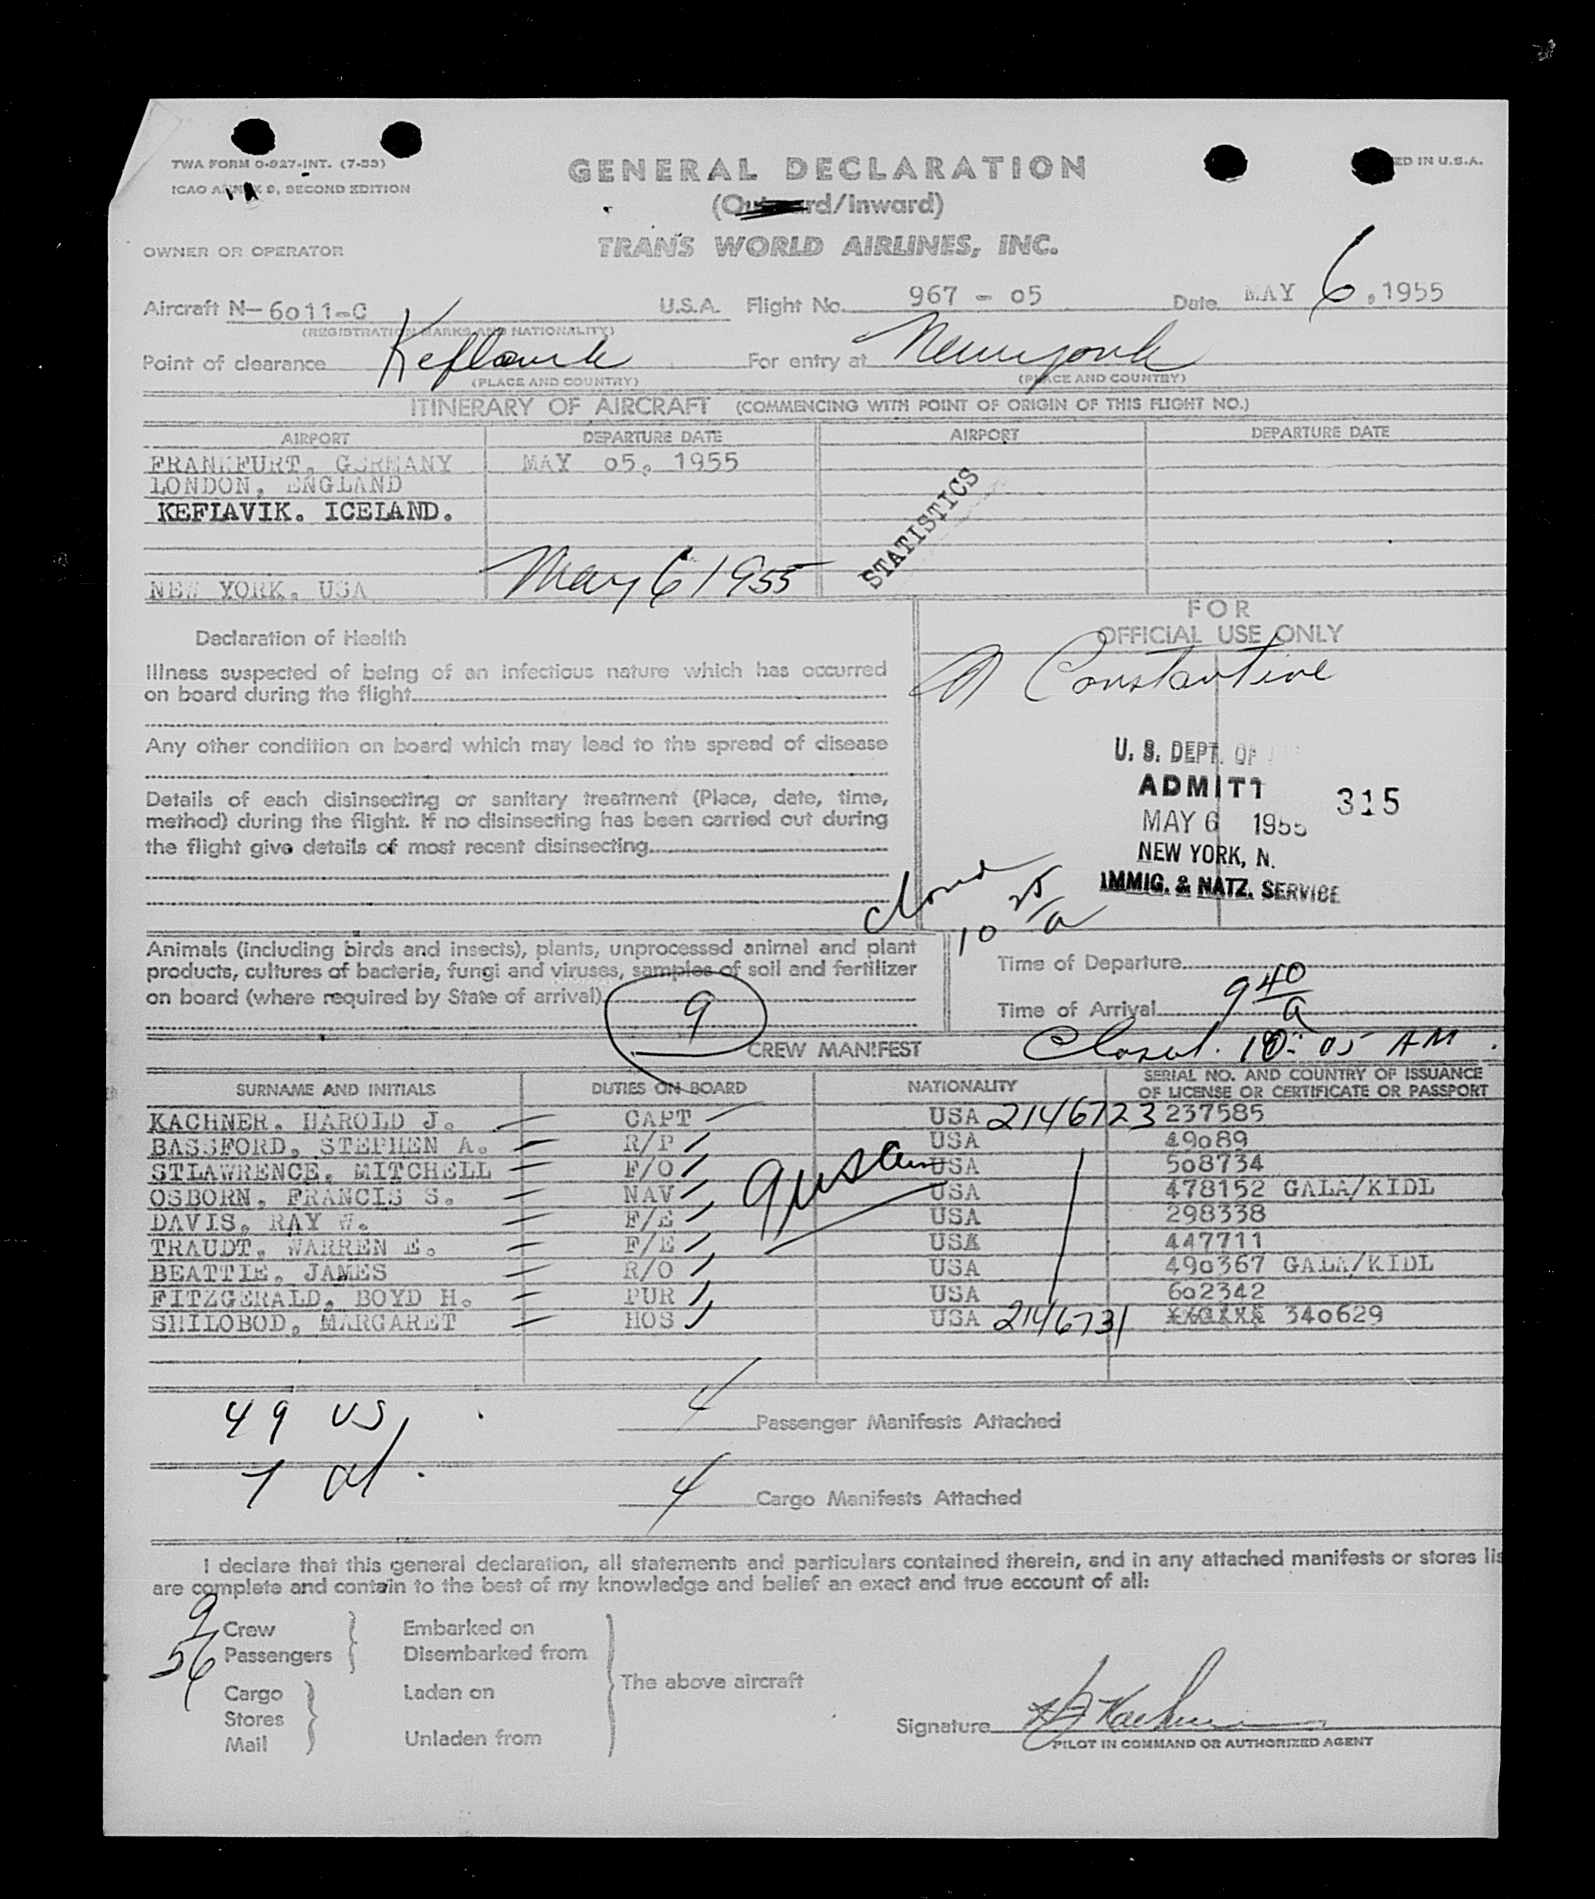 TWA FORM O-927-INT. (7-53)
ICAO ANNEX 9, SECOND EDITION
ED IN U.S.A.
GENERAL DECLARATION
(Outward/Inward)
OWNER OR OPERATOR
TRANS WORLD AIRLINES, INC.
Aircraft N-6011-C U.S.A. Flight No. 967 - 05 Date MAY 6, 1955
(REGISTRATION MARKS AND NATIONALITY)
Point of clearance Keflavik For entry at New York
(PLACE AND COUNTRY) (PLACE AND COUNTRY)
ITINERARY OF AIRCRAFT (COMMENCING WITH POINT OF ORIGIN OF THIS FLIGHT NO.)
AIRPORT DEPARTURE DATE AIRPORT DEPARTURE DATE
FRANKFURT, GERMANY MAY 05, 1955
LONDON, ENGLAND
KEFLAVIK. ICELAND.
STATISTICS
NEW YORK, USA May 6 1955
FOR
OFFICIAL USE ONLY
Constantine
Declaration of Health
Illness suspected of being of an infectious nature which has occurred
on board during the flight
Any other condition on board which may lead to the spread of disease
Details of each disinsecting or sanitary treatment (Place, date, time,
method) during the flight. If no disinsecting has been carried out during
the flight give details of most recent disinsecting
U. S. DEPT. OF
ADMITT
315
MAY 6 1955
NEW YORK, N.
IMMIG. & NATZ. SERVICE
closed
10 25/a
Animals (including birds and insects), plants, unprocessed animal and plant
products, cultures of bacteria, fungi and viruses, samples of soil and fertilizer
on board (where required by State of arrival)
9
Time of Departure
Time of Arrival 9 40/a
CREW MANIFEST
Closed. 10:05 AM.
SURNAME AND INITIALS DUTIES ON BOARD NATIONALITY SERIAL NO. AND COUNTRY OF ISSUANCE
OF LICENSE OR CERTIFICATE OR PASSPORT
KACHNER, HAROLD J. CAPT USA 2146723 237585
BASSFORD, STEPHEN A. R/P USA 49089
STLAWRENCE, MITCHELL F/O USA 508734
OSBORN, FRANCIS S. NAV USA 478152 GALA/KIDL
DAVIS, RAY W. F/E USA 298338
TRAUDT, WARREN E. F/E USA 447711
BEATTIE, JAMES R/O USA 490367 GALA/KIDL
FITZGERALD, BOYD H. PUR USA 602342
SHILOBOD, MARGARET HOS USA 2146731 340629
49 US
4 Passenger Manifests Attached
7 al.
4 Cargo Manifests Attached
I declare that this general declaration, all statements and particulars contained therein, and in any attached manifests or stores lis
are complete and contain to the best of my knowledge and belief an exact and true account of all:
9 Crew
56 Passengers
Embarked on
Disembarked from
Cargo
Stores
Mail
Laden on
Unladen from
The above aircraft
Signature H J Kachner
PILOT IN COMMAND OR AUTHORIZED AGENT